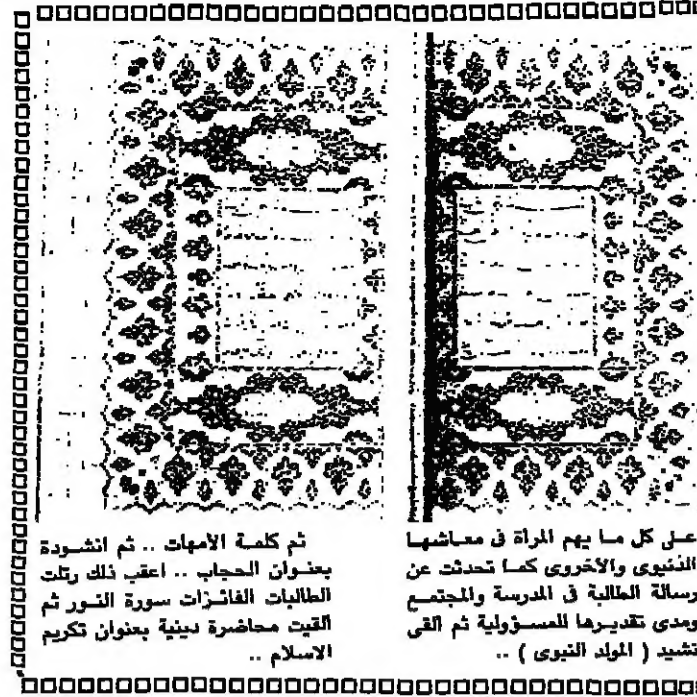 على كل ما يهم المرأة فى معاشها
الدنيوى والأخروى كما تحدثت عن
رسالة الطالبة فى المدرسة والمجتمع
ومدى تقديرها للمسؤولية ثم القى
نشيد ( المولد النبوى ) ..
ثم كلمة الأمهات .. ثم انشودة
بعنوان الحجاب .. اعقب ذلك رتلت
الطالبات الفائزات سورة النور ثم
ألقيت محاضرة دينية بعنوان تكريم
الاسلام ..